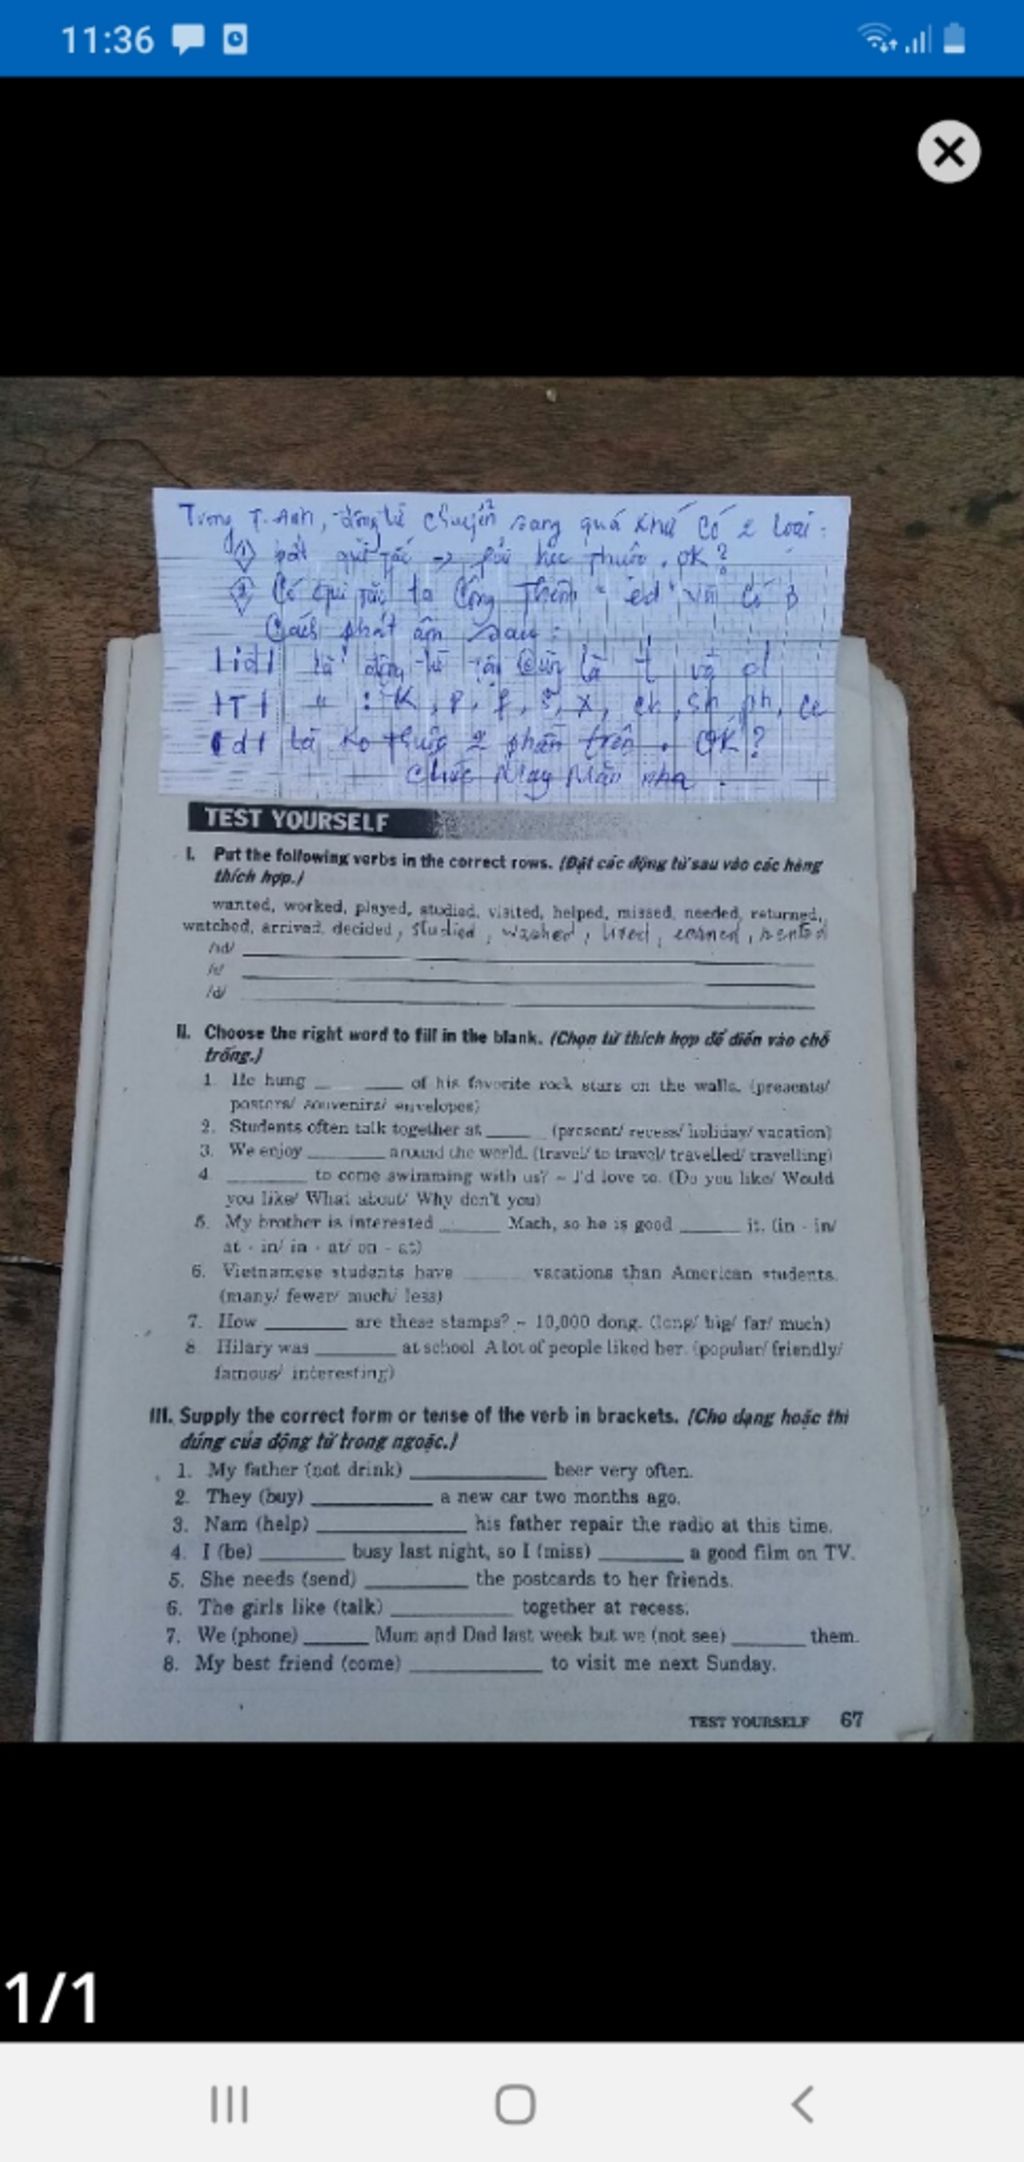 11:36
Trong T. Anh, động từ chuyển sang quá khứ có 2 loại:
1 bất qui tắc → phải học thuộc. OK?
2 Có qui tắc ta Cộng Thêm "ed" và có 3
Cách phát âm sau:
/id/ là động từ tận cùng là t và d
/T/ " : K, p, f, s, x, ch, sh, ph, ce
/d/ là ko thuộc 2 phần trên. OK?
Chúc May Mắn nha.
TEST YOURSELF
I. Put the following verbs in the correct rows. (Đặt các động từ sau vào các hàng
thích hợp.)
wanted, worked, played, studied, visited, helped, missed, needed, returned,
watched, arrived, decided, studied, washed, lived, rented
/id/
/t/
/d/
II. Choose the right word to fill in the blank. (Chọn từ thích hợp để điền vào chỗ
trống.)
1. He hung ____ ____ of his favorite rock stars on the walls. (presents/
posters/ souvenirs/ envelopes)
2. Students often talk together at ____ (present/ recess/ holiday/ vacation)
3. We enjoy ____ around the world. (travel/ to travel/ travelled/ travelling)
4. ____ to come swimming with us? ~ I'd love to. (Do you like/ Would
you like/ What about/ Why don't you)
5. My brother is interested ____ Math, so he is good ____ it. (in - in/
at - in/ in - at/ on - at)
6. Vietnamese students have ____ vacations than American students.
(many/ fewer/ much/ less)
7. How ____ are these stamps? ~ 10,000 dong. (long/ big/ far/ much)
8. Hilary was ____ at school. A lot of people liked her. (popular/ friendly/
famous/ interesting)
III. Supply the correct form or tense of the verb in brackets. (Cho dạng hoặc thì
đúng của động từ trong ngoặc.)
1. My father (not drink) ____ beer very often.
2. They (buy) ____ a new car two months ago.
3. Nam (help) ____ his father repair the radio at this time.
4. I (be) ____ busy last night, so I (miss) ____ a good film on TV.
5. She needs (send) ____ the postcards to her friends.
6. The girls like (talk) ____ together at recess.
7. We (phone) ____ Mum and Dad last week but we (not see) ____ them.
8. My best friend (come) ____ to visit me next Sunday.
TEST YOURSELF 67
1/1